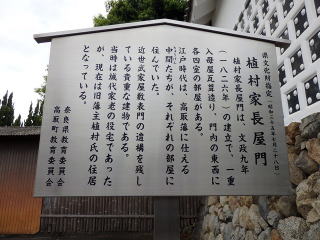 県文化財指定（昭和三十五年七月二十八日）
植村家長屋門
植村家長屋門は、文政九年
（一八二六年）の建立で、一重
入母屋瓦葺造り、門内の東西に
各四室の部屋がある。
江戸時代は、高取藩に仕える
中間たちが、それぞれの部屋に
住んでいた。
近世武家屋敷表門の遺構を残し
ている貴重な建物である。
当時は城代家老の役宅であった
が、現在は旧藩主植村氏の住居
となっている。
奈良県教育委員会
高取町教育委員会